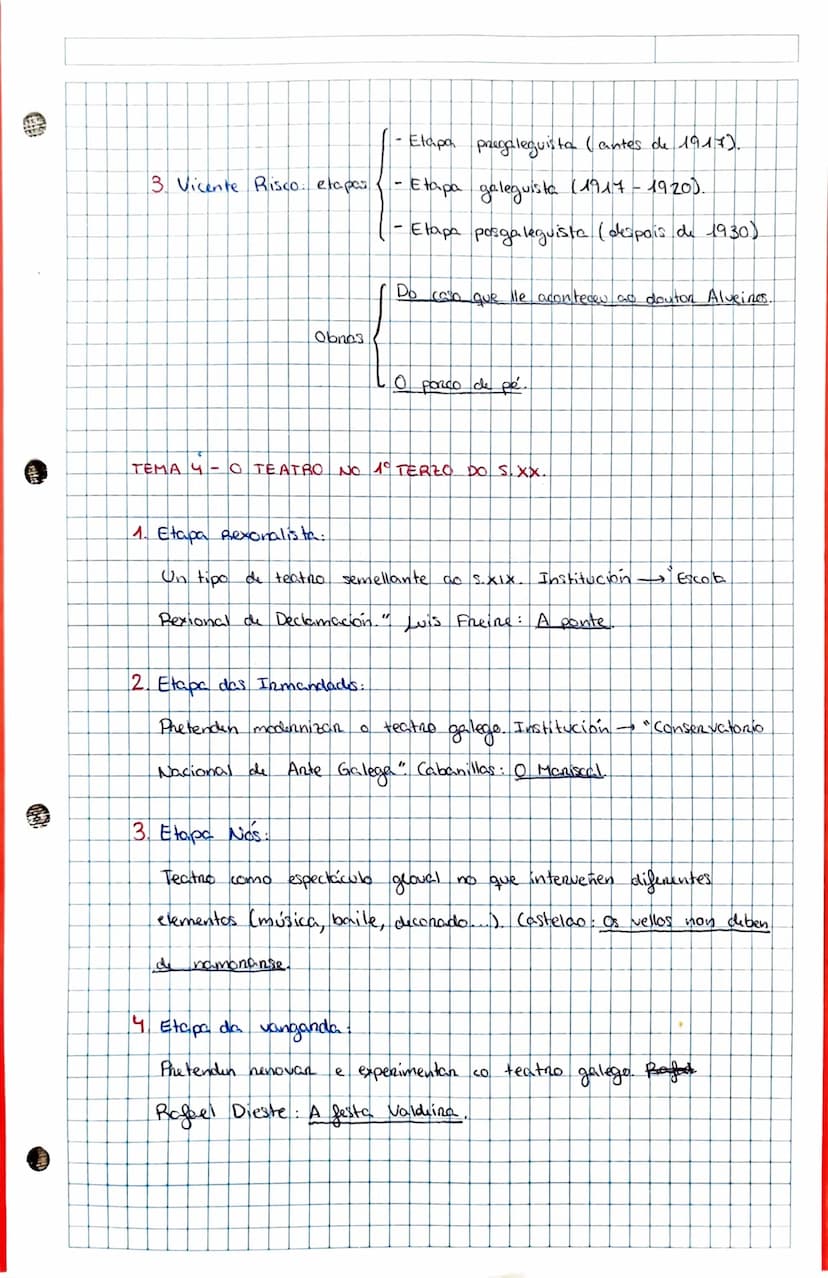 - Etapa pregaleguista (antes de 1917).
3. Vicente Risco: etapas
- Etapa galeguista (1917 - 1920).
- Etapa posgaleguista (despois de 1930)
Do caso que lle aconteceu ao doutor Alveiros.
Obras
O porco de pé.
TEMA 4 - O TEATRO NO 1º TERZO DO S.XX.
1. Etapa Rexoralista:
Un tipo de teatro semellante ao S.XIX. Institución → "Escola
Rexional de Declamación." Luis Freire: A ponte.
2. Etapa das Irmandades:
Pretenden modernizar o teatro galego. Institución → "Conservatorio
Nacional de Arte Galega". Cabanillas: O Mariscal.
3. Etapa Nós:
Teatro como espectáculo gloval no que interveñen diferentes
elementos (música, baile, decorado...). Castelao: Os vellos non deben
de namorarse.
4. Etapa da vangarda:
Pretenden renovar e experimentar co teatro galego. Rafael
Rafael Dieste: A festa Valdeira.